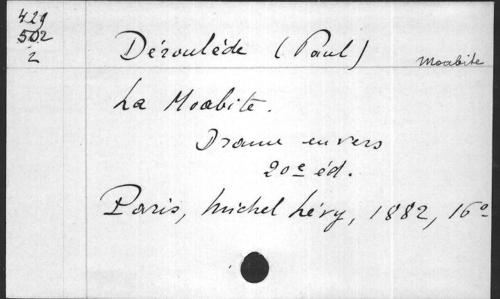 429
502
2
Déroulède (Paul)
Moabite
La Moabite.
Drame en vers
20e éd.
Paris, Michel Lévy, 1882, 16o